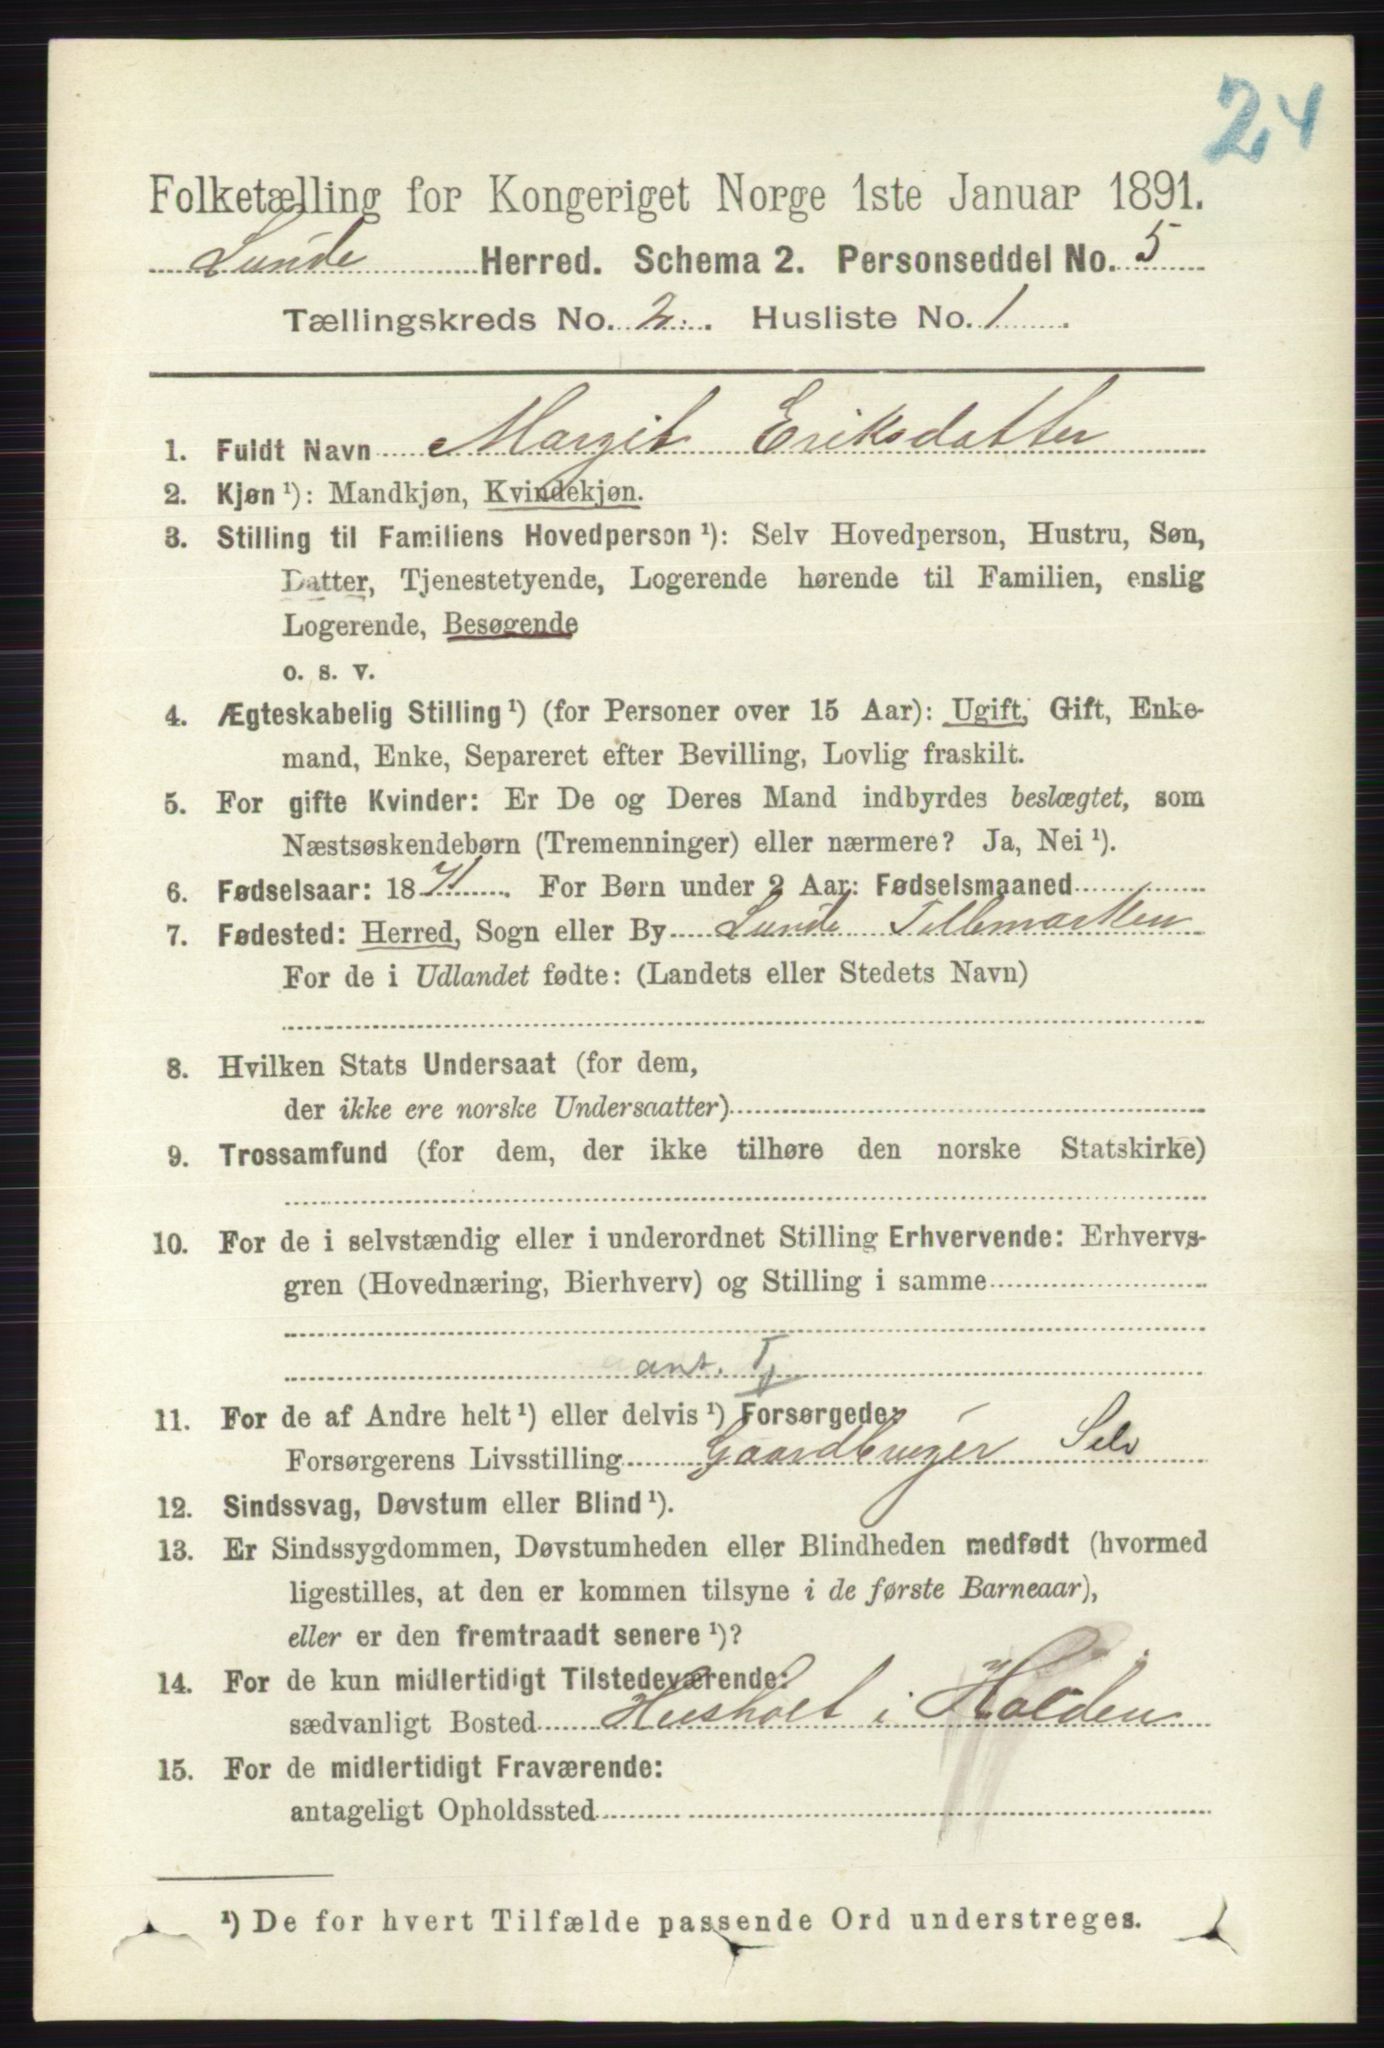 24
Folketælling for Kongeriget Norge 1ste Januar 1891.
Lunde Herred. Schema 2. Personseddel No. 5
Tællingskreds No. 2. Husliste No. 1.
1. Fuldt Navn Margit Eriksdatter
2. Kjøn ¹): Mandkjøn, Kvindekjøn.
3. Stilling til Familiens Hovedperson ¹): Selv Hovedperson, Hustru, Søn,
Datter, Tjenestetyende, Logerende hørende til Familien, enslig
Logerende, Besøgende
o. s. v.
4. Ægteskabelig Stilling ¹) (for Personer over 15 Aar): Ugift, Gift, Enke-
mand, Enke, Separeret efter Bevilling, Lovlig fraskilt.
5. For gifte Kvinder: Er De og Deres Mand indbyrdes beslægtet, som
Næstsøskendebørn (Tremenninger) eller nærmere? Ja, Nei ¹).
6. Fødselsaar: 1871. For Børn under 2 Aar: Fødselsmaaned
7. Fødested: Herred, Sogn eller By Lunde Tellemarken
For de i Udlandet fødte: (Landets eller Stedets Navn)
8. Hvilken Stats Undersaat (for dem,
der ikke ere norske Undersaatter)
9. Trossamfund (for dem, der ikke tilhøre den norske Statskirke)
10. For de i selvstændig eller i underordnet Stilling Erhvervende: Erhvervs-
gren (Hovednæring, Bierhverv) og Stilling i samme
ant. Tj
11. For de af Andre helt ¹) eller delvis ¹) Forsørgede:
Forsørgerens Livsstilling Gaardbruger Selv
12. Sindssvag, Døvstum eller Blind ¹).
13. Er Sindssygdommen, Døvstumheden eller Blindheden medfødt (hvormed
ligestilles, at den er kommen tilsyne i de første Barneaar),
eller er den fremtraadt senere ¹)?
14. For de kun midlertidigt Tilstedeværende:
sædvanligt Bosted Husholt i Holden
15. For de midlertidigt Fraværende:
antageligt Opholdssted
¹) De for hvert Tilfælde passende Ord understreges.